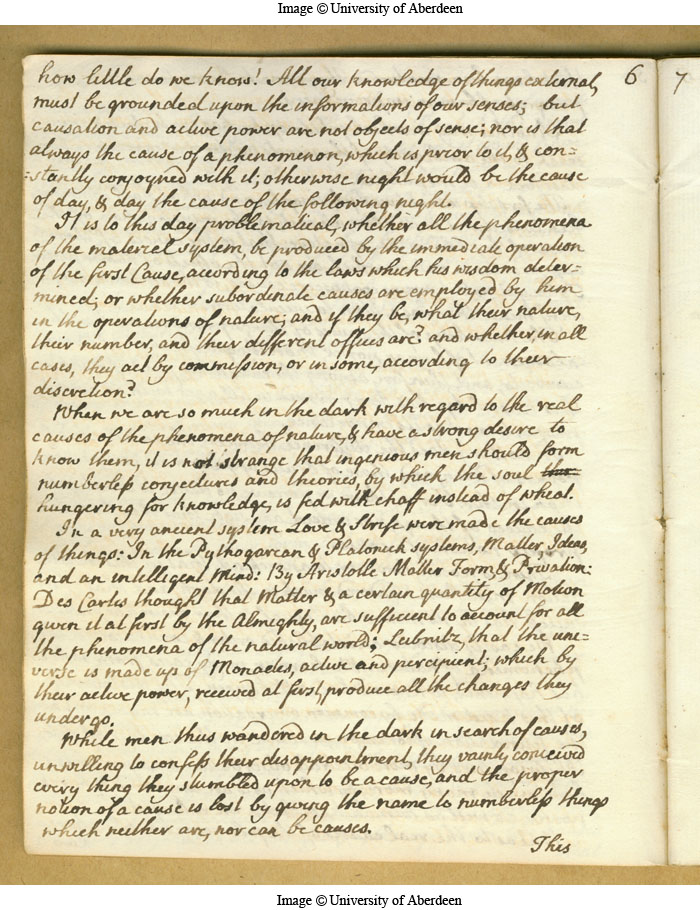 Image © University of Aberdeen
6
7
how little do we know! All our knowledge of things external,
must be grounded upon the informations of our senses; but
causation and active power are not objects of sense; nor is that
always the cause of a phenomenon, which is prior to it, & con=
=stantly conjoyned with it; otherwise night would be the cause
of day, & day the cause of the following night.
It is to this day problematical, whether all the phenomena
of the material system, be produced by the immediate operation
of the first Cause, according to the laws which his wisdom deter=
mined; or whether subordinate causes are employed by him
in the operations of nature; and if they be, what their nature,
their number, and their different offices are? and whether, in all
cases, they act by commission, or in some, according to their
discretion?
When we are so much in the dark with regard to the real
causes of the phenomena of nature, & have a strong desire to
know them, it is not strange that ingenious men should form
numberless conjectures and theories, by which the soul
hungering for knowledge, is fed with chaff instead of wheat.
In a very ancient system Love & Strife were made the causes
of things: In the Pythogarean & Platonick systems, Matter, Ideas,
and an intelligent Mind: By Aristotle Matter Form & Privation:
Des Cartes thought that Matter & a certain quantity of Motion
given it at first by the Almighty, are sufficient to account for all
the phenomena of the natural world; Leibnitz, that the uni=
verse is made up of Monades, active and percipient; which by
their active power, received at first, produce all the changes they
undergo.
While men thus wandered in the dark in search of causes,
unwilling to confess their disappointment, they vainly conceived
every thing they stumbled upon to be a cause, and the proper
notion of a cause is lost by giving the name to numberless things
which neither are, nor can be causes.
This
Image © University of Aberdeen